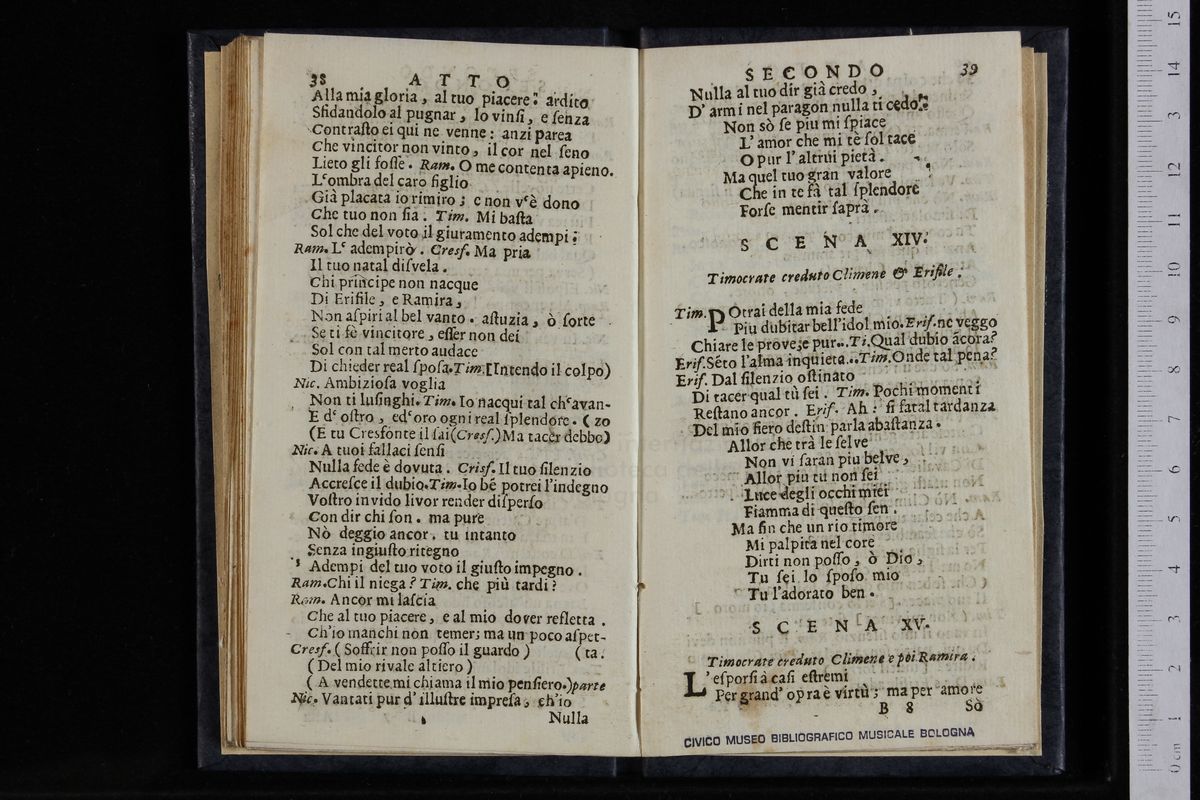 38 ATTO
Alla mia gloria, al tuo piacere: ardito
Sfidandolo al pugnar, lo vinſi, e ſenza
Contraſto ei qui ne venne: anzi parea
Che vincitor non vinto, il cor nel ſeno
Lieto gli foſſe. Ram. O me contenta apieno.
Lʿombra del caro figlio
Già placata io rimiro; e non vʿè dono
Che tuo non ſia. Tim. Mi baſta
Sol che del voto il giuramento adempi:
Ram. Lʿ adempirò. Cresf. Ma pria
Il tuo natal diſvela.
Chi principe non nacque
Di Erifile, e Ramira,
Non aſpiri al bel vanto. aſtuzia, ò ſorte
Se ti fè vincitore, eſſer non dei
Sol con tal merto audace
Di chieder real ſpoſa. Tim. [Intendo il colpo)
Nic. Ambizioſa voglia
Non ti luſinghi. Tim. Io nacqui tal chʿavan-
E dʿ oſtro, edʿoro ogni real ſplendore. ( zo
(E tu Cresfonte il ſai (Cresf.) Ma tacer debbo)
Nic. A tuoi fallaci ſenſi
Nulla fede è dovuta. Crisf. Il tuo ſilenzio
Accreſce il dubio. Tim. Io bé potrei l'indegno
Voſtro invido livor render diſperſo
Con dir chi ſon. ma pure
Nò deggio ancor. tu intanto
Senza ingiuſto ritegno
Adempi del tuo voto il giuſto impegno.
Ram. Chi il niega? Tim. che più tardi?
Ram. Ancor mi laſcia
Che al tuo piacere, e al mio dover refletta.
Ch'io manchi non temer; ma un poco aſpet-
Cresf. ( Soffrir non poſſo il guardo ) ( ta.
( Del mio rivale altiero )
( A vendette mi chiama il mio penſiero.) parte
Nic. Vantati pur d' illuſtre impreſa, ch'io
Nulla
SECONDO 39
Nulla al tuo dir già credo,
D' armi nel paragon nulla ti cedo.
Non sò ſe piu mi ſpiace
L' amor che mi tè ſol tace
O pur l' altrui pietà.
Ma quel tuo gran valore
Che in te fà tal ſplendore
Forſe mentir ſaprà.
SCENA XIV.
Timocrate creduto Climene & Erifile.
Tim. POtrai della mia fede
Piu dubitar bell'idol mio. Erif. ne veggo
Chiare le prove; e pur... Ti. Qual dubio ãcora?
Erif. Séto l'alma inquieta... Tim. Onde tal pena?
Erif. Dal ſilenzio oſtinato
Di tacer qual tù ſei. Tim. Pochi momenti
Reſtano ancor. Erif. Ah: ſi fatal tardanza
Del mio fiero deſtin parla abaſtanza.
Allor che trà le ſelve
Non vi ſaran piu belve,
Allor piu tu non ſei
Luce degli occhi miei
Fiamma di queſto ſen.
Ma fin che un rio timore
Mi palpita nel core
Dirti non poſſo, ò Dio,
Tu ſei lo ſpoſo mio
Tu l'adorato ben.
SCENA XV.
Timocrate creduto Climene e poi Ramira.
L'eſporſi à caſi eſtremi
Per grand' opra è virtù; ma per amore
B 8 Sò
CIVICO MUSEO BIBLIOGRAFICO MUSICALE BOLOGNA
0 cm 1 2 3 4 5 6 7 8 9 10 11 12 13 14 15